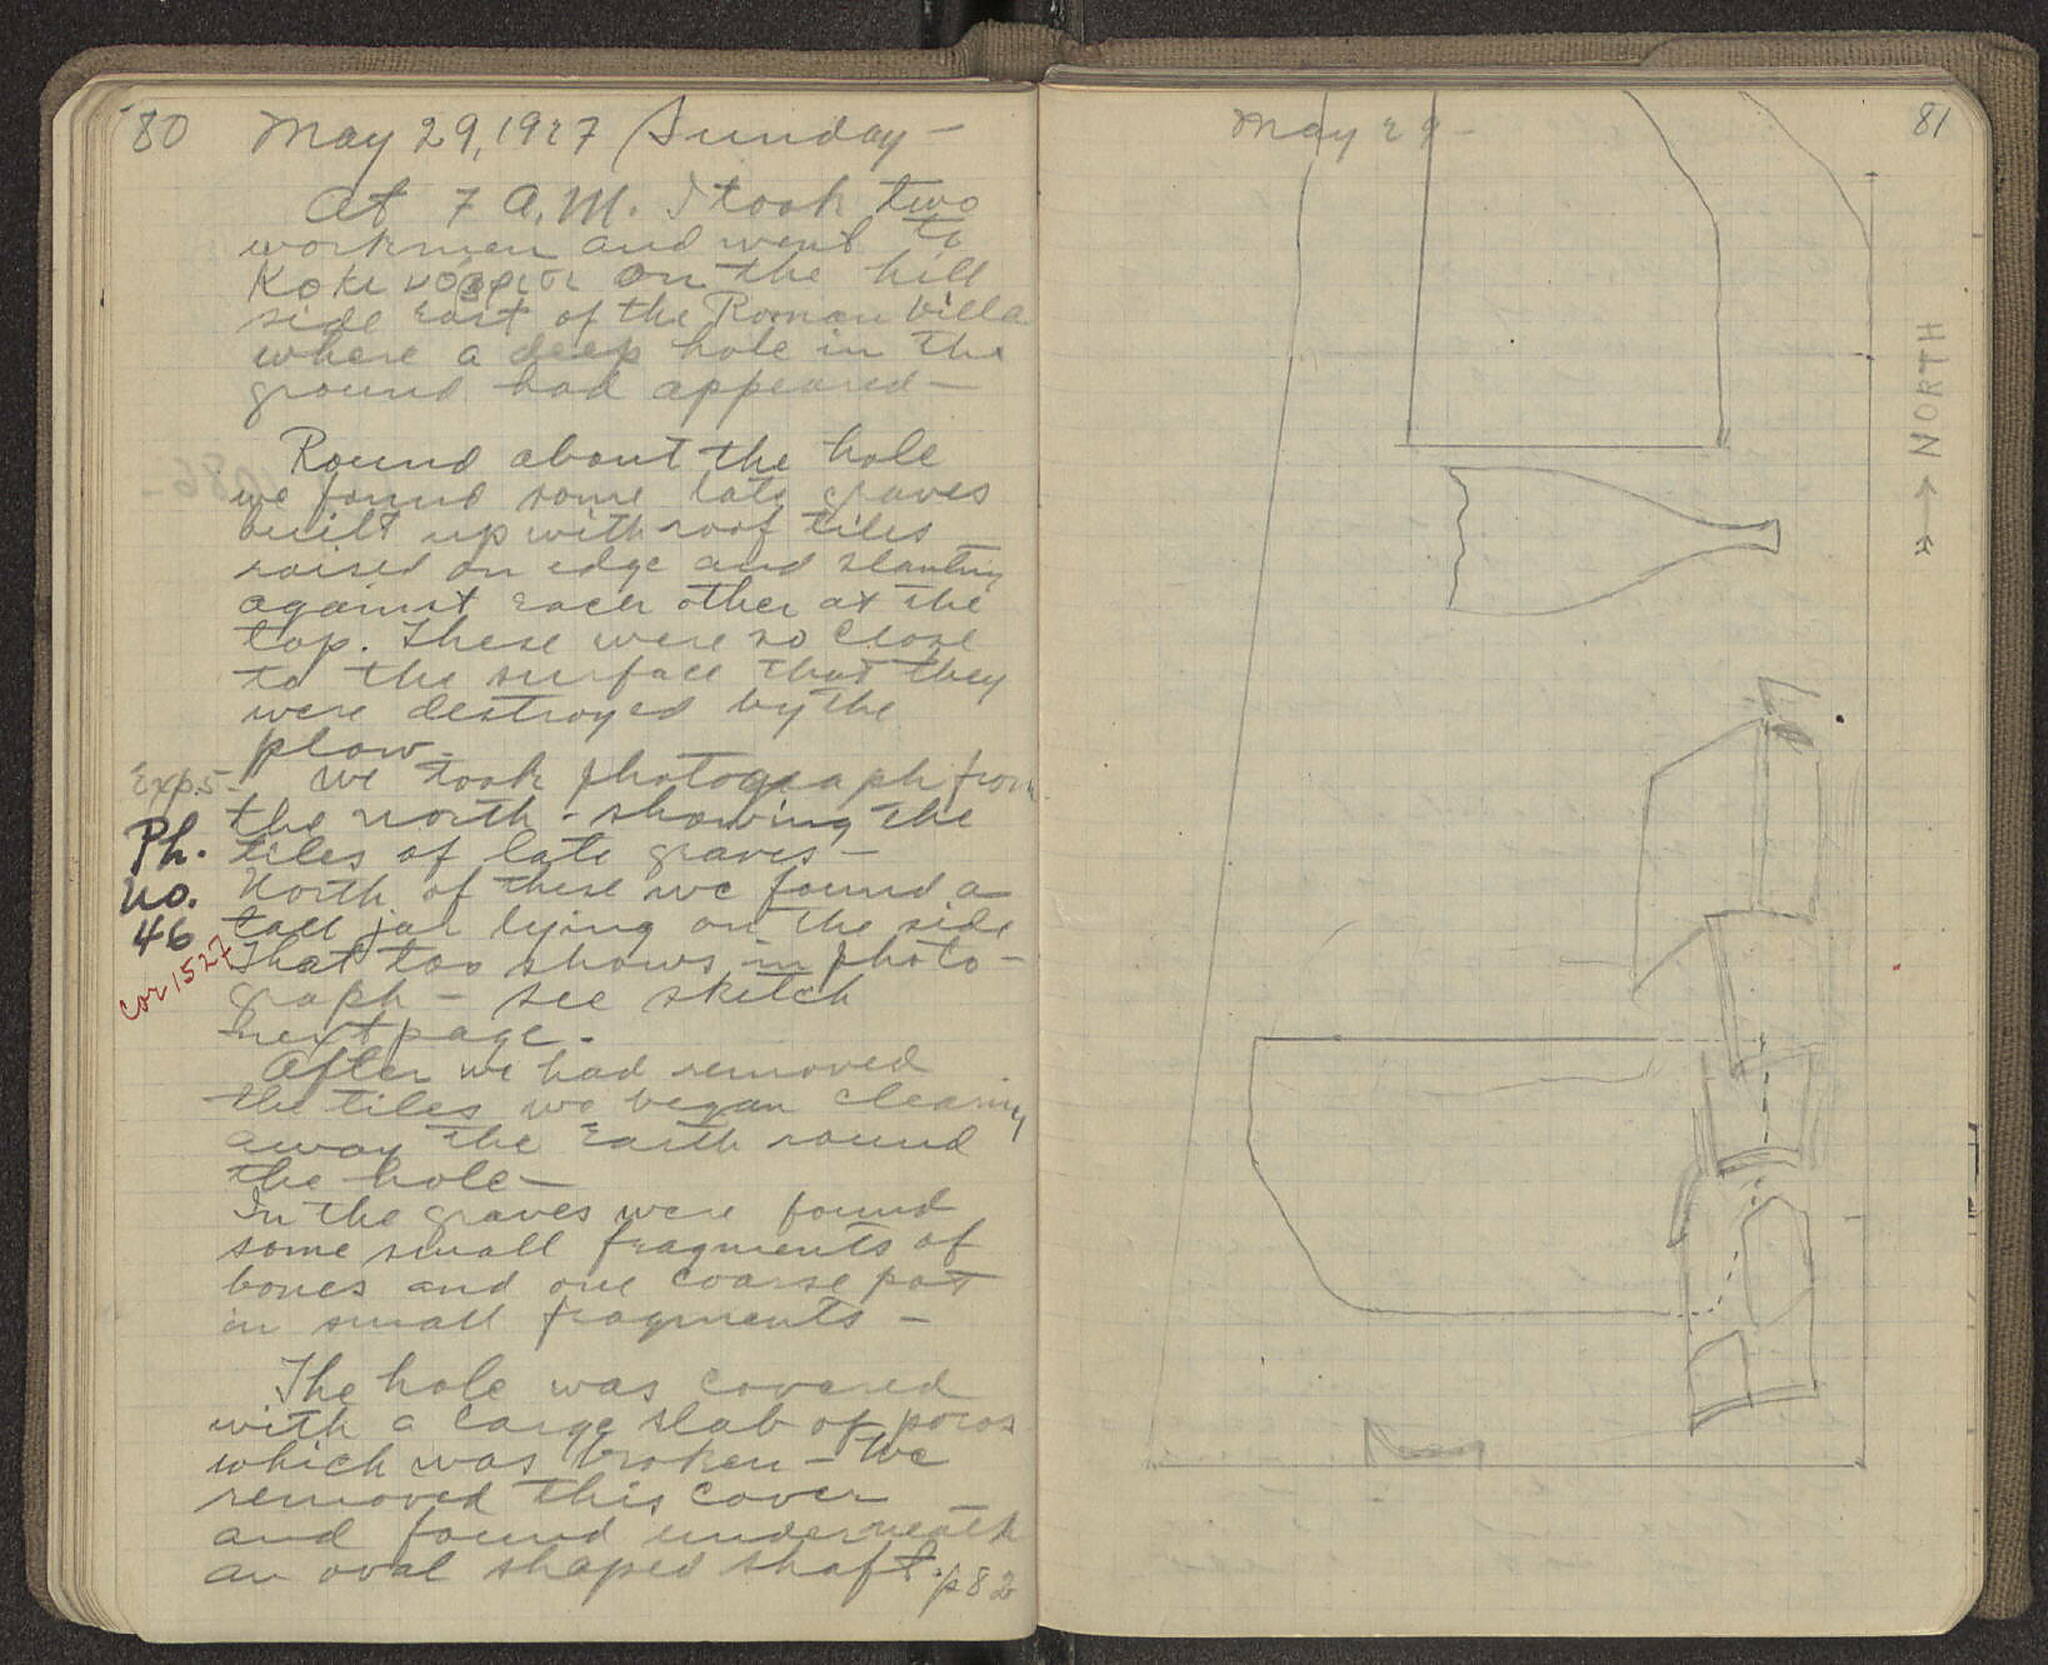 80 May 29, 1927 Sunday –
At 7 A.M. I took two
workmen and went to
on the hill
side East of the Roman Villa
where a deep hole in the
ground had appeared –
Round about the hole
we found some late graves
built up with roof tiles
raised on edge and slanting
against each other at the
top. These were so close
to the surface that they
were destroyed by the
plow –
Exp. 5 – We took photograph from
the north – showing the
Ph. tiles of late graves –
No. North of these we found a
46 tall jar lying on the side
Cor 1527 That too shows in photo –
graph – see sketch
next page.
After we had removed
the tiles we began clearing
away the Earth round
the hole –
In the graves were found
some small fragments of
bones and one coarse pot
in small fragments –
The hole was covered
with a large slab of poros
which was broken – We
removed this cover
and found underneath
an oval shaped shaft. p 82
May 29 – 81
NORTH